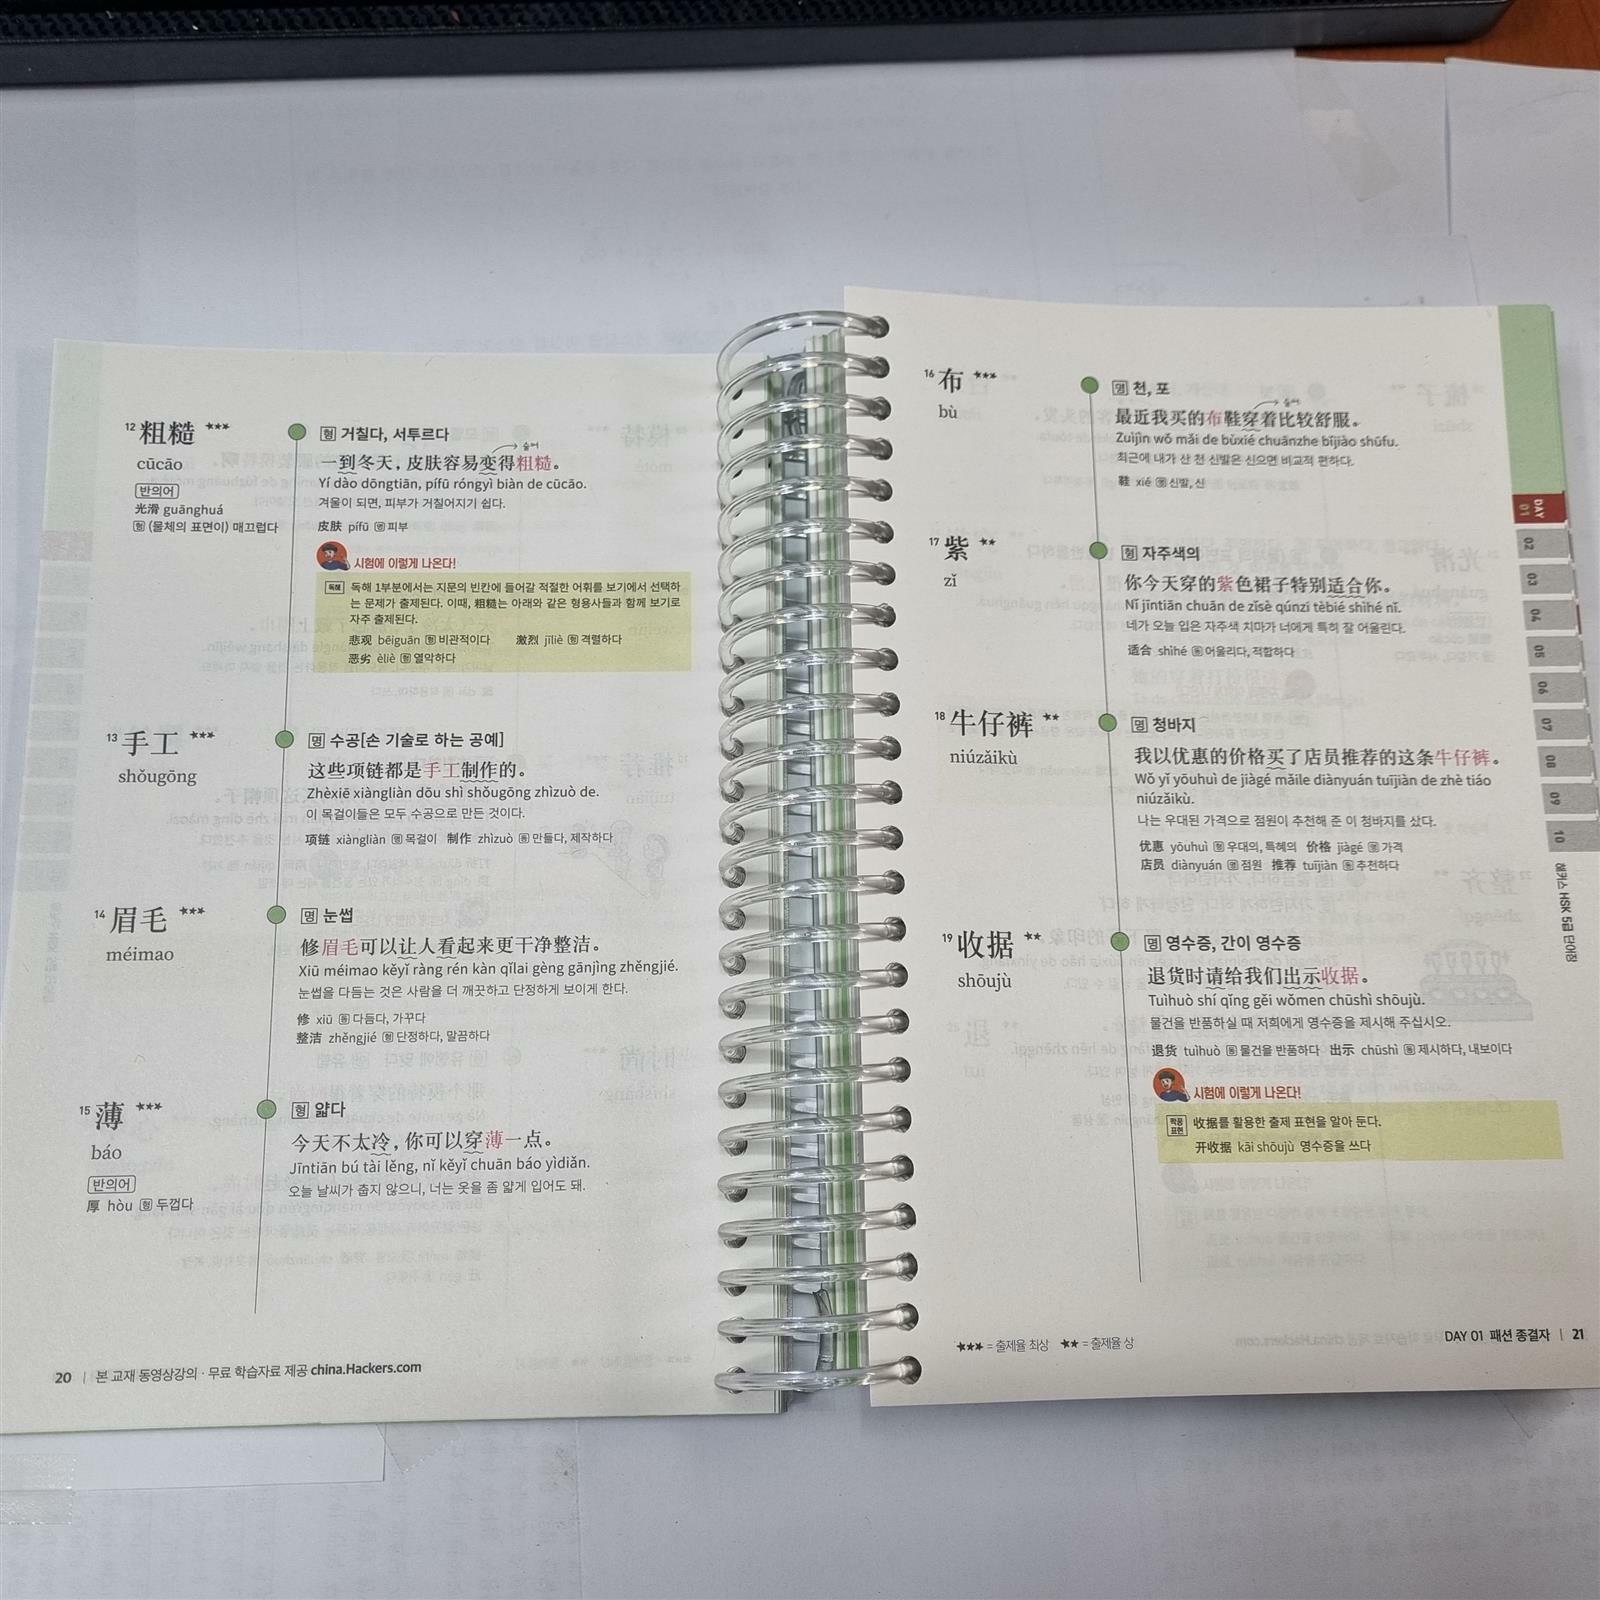 12 粗糙 ★★★
cūcāo
반의어
光滑 guānghuá
형 (물체의 표면이) 매끄럽다
형 거칠다, 서투르다
술어
一到冬天，皮肤容易变得粗糙。
Yí dào dōngtiān, pífū róngyì biàn de cūcāo.
겨울이 되면, 피부가 거칠어지기 쉽다.
皮肤 pífū 명 피부
시험에 이렇게 나온다!
독해 독해 1부분에서는 지문의 빈칸에 들어갈 적절한 어휘를 보기에서 선택하
는 문제가 출제된다. 이때, 粗糙는 아래와 같은 형용사들과 함께 보기로
자주 출제된다.
悲观 bēiguān 형 비관적이다 激烈 jīliè 형 격렬하다
恶劣 èliè 형 열악하다
13 手工 ★★★
shǒugōng
명 수공[손 기술로 하는 공예]
这些项链都是手工制作的。
Zhèxiē xiàngliàn dōu shì shǒugōng zhìzuò de.
이 목걸이들은 모두 수공으로 만든 것이다.
项链 xiàngliàn 명 목걸이 制作 zhìzuò 동 만들다, 제작하다
14 眉毛 ★★★
méimao
명 눈썹
修眉毛可以让人看起来更干净整洁。
Xiū méimao kěyǐ ràng rén kàn qǐlai gèng gānjìng zhěngjié.
눈썹을 다듬는 것은 사람을 더 깨끗하고 단정하게 보이게 한다.
修 xiū 동 다듬다, 가꾸다
整洁 zhěngjié 형 단정하다, 말끔하다
15 薄 ★★★
báo
반의어
厚 hòu 형 두껍다
형 얇다
今天不太冷，你可以穿薄一点。
Jīntiān bú tài lěng, nǐ kěyǐ chuān báo yìdiǎn.
오늘 날씨가 춥지 않으니, 너는 옷을 좀 얇게 입어도 돼.
20 | 본 교재 동영상강의 · 무료 학습자료 제공 china.Hackers.com
16 布 ★★★
bù
명 천, 포
술어
最近我买的布鞋穿着比较舒服。
Zuìjìn wǒ mǎi de bùxié chuānzhe bǐjiào shūfu.
최근에 내가 산 천 신발은 신으면 비교적 편하다.
鞋 xié 명 신발, 신
17 紫 ★★
zǐ
형 자주색의
你今天穿的紫色裙子特别适合你。
Nǐ jīntiān chuān de zǐsè qúnzi tèbié shìhé nǐ.
네가 오늘 입은 자주색 치마가 너에게 특히 잘 어울린다.
适合 shìhé 동 어울리다, 적합하다
18 牛仔裤 ★★
niúzǎikù
명 청바지
我以优惠的价格买了店员推荐的这条牛仔裤。
Wǒ yǐ yōuhuì de jiàgé mǎile diànyuán tuījiàn de zhè tiáo
niúzǎikù.
나는 우대된 가격으로 점원이 추천해 준 이 청바지를 샀다.
优惠 yōuhuì 형 우대의, 특혜의 价格 jiàgé 명 가격
店员 diànyuán 명 점원 推荐 tuījiàn 동 추천하다
19 收据 ★★
shōujù
명 영수증, 간이 영수증
退货时请给我们出示收据。
Tuìhuò shí qǐng gěi wǒmen chūshì shōujù.
물건을 반품하실 때 저희에게 영수증을 제시해 주십시오.
退货 tuìhuò 동 물건을 반품하다 出示 chūshì 동 제시하다, 내보이다
시험에 이렇게 나온다!
짝꿍 표현 收据를 활용한 출제 표현을 알아 둔다.
开收据 kāi shōujù 영수증을 쓰다
★★★ = 출제율 최상 ★★ = 출제율 상
DAY 01 패션 종결자 | 21
DAY
01
02
03
04
05
06
07
08
09
10
해커스 HSK 5급 단어장